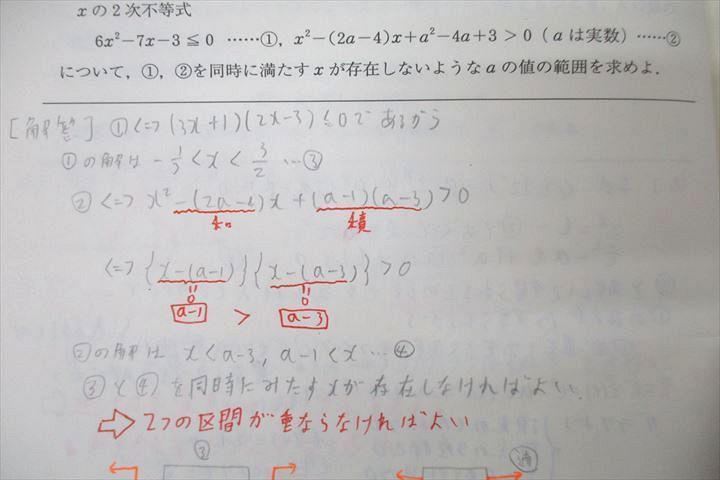 xの2次不等式
6x²−7x−3≦0 ……①, x²−(2a−4)x+a²−4a+3>0 (aは実数) ……②
について, ①, ②を同時に満たすxが存在しないようなaの値の範囲を求めよ.
[解答] ①<=>(3x+1)(2x-3)≦0であるから
①の解は -1/3<x<3/2 …③
②<=> x²-(2a-4)x+(a-1)(a-3)>0
和 積
<=>{x-(a-1)}{x-(a-3)}>0
0 0
a-1 > a-3
②の解は x<a-3, a-1<x …④
③と④を同時にみたすxが存在しなければよい.
⇨ 2つの区間が重ならなければよい
③